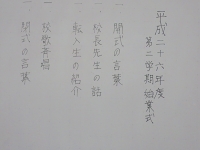 平成二十六年度
第二学期始業式
一 開式の言葉
一 校長先生の話
一 転入生の紹介
一 校歌斉唱
一 閉式の言葉